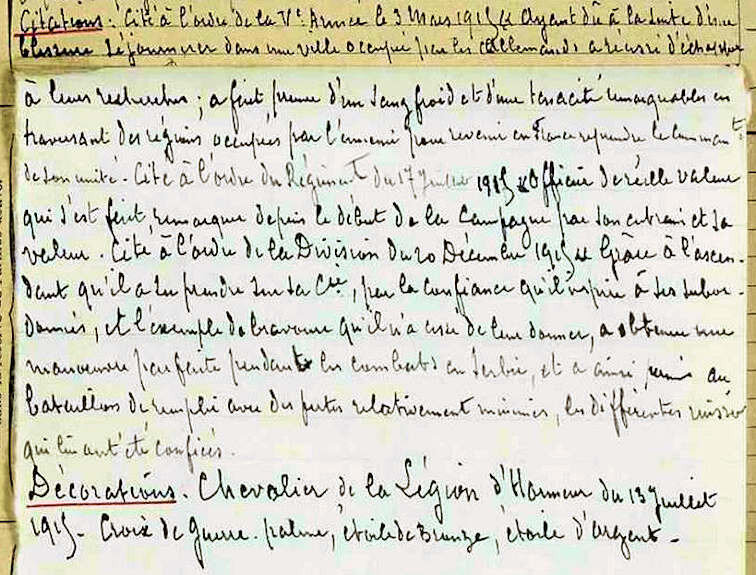 Citations : Cité à l'ordre de la Vᵉ Armée le 3 Mars 1915 « Ayant dû à la suite d'une
blessure séjourner dans une ville occupée par les Allemands a réussi d'échapper
à leurs recherches ; a fait preuve d'un sang froid et d'une tenacité remarquables en
traversant des régions occupées par l'ennemi pour revenir en France reprendre le commanᵗ
de son unité. Cité à l'ordre du Régiment du 17 Juillet 1915 « Officier de réelle valeur
qui s'est fait remarquer depuis le début de la Campagne par son entrain et sa
valeur. Cité à l'ordre de la Division du 20 Décembre 1915 « Grâce à l'ascen-
dant qu'il a su prendre sur sa Cⁱᵉ, par la confiance qu'il inspire à ses subor-
donnés, et l'exemple de bravoure qu'il n'a cessé de leur donner, a obtenu une
manoeuvre parfaite pendant les combats en Serbie, et a ainsi permis au
bataillon de remplir avec des pertes relativement minimes, les différentes missions
qui lui ont été confiées.
Décorations. Chevalier de la Légion d'Honneur du 13 Juillet
1915 - Croix de Guerre. palme, étoile de Bronze, étoile d'argent -